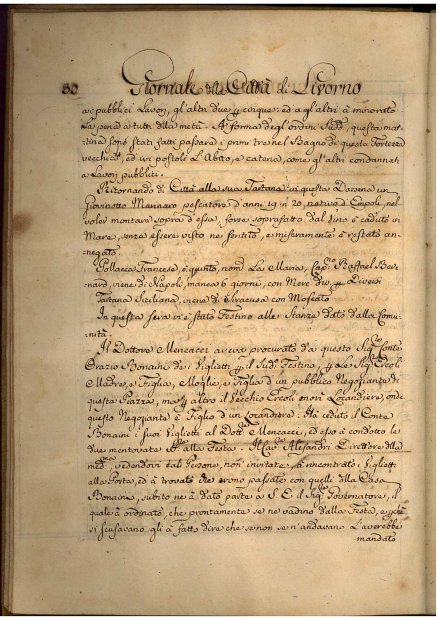 80 Giornale della Città di Livorno
a' pubblici Lavori, gl'altri due p cinque: ed agl'altri à minorato
la pena a tutti alla metà. A forma degl'ordini Sudd. questa mat-
tina sono stati fatti passare i primi tre nel Bagno di questa Fortezza
vecchia, ed ivi postoli l'Abito, e catena, come gl'altri condannati
a' Lavori pubblici.
Ritornando di Città alla sua Tartana in questa Darsena un
Giovinotto Marinaro pescatore d'anni 19 in 20, nativo d'Empoli, nel
voler montare sopra d'essa, forse soprafatto dal vino è caduto in
Mare, senza essere visto ne sentito, e miseramente è restato an-
negato.
Pollacca Francese, è giunto, nom. La Maria, Cap.no Raffael Ber-
nard, viene di Napoli, manca 6 giorni, con Merc. p Diversi
Tartana Siciliana, viene di Siracusa con Moscato
In questa sera vi è stato Festino alle Stanze dato dalla Comu-
nità.
Il Dottore Menecacci aveva procurato da questo Sig. Conte
Orazio Bonaini dei Biglietti p il Sud. Festino, p Le Sig. Ercoli
Madre, e Figlia, Moglie, e Figlia d'un pubblico Negoziante di
questa Piazza, ma p altro il Vecchio Ercoli morì Locandiere, onde
questo Negoziante è Figlio d'un Locandiere. Hà ceduto il Conte
Bonaini i suoi Biglietti al Dott. Menecacci, ed esso à condotto le
due mentovate alla Festa. Il Cav. Alesandri Direttore della
med. vedendovi tali Persone, non invitate, à rincontrato i Biglietti
alla Porta, ed à trovato che erano passate con quelli della Casa
Bonaini, subito ne à dato parte a S. E. il Sig. Governatore, il
quale à ordinato, che prontamente se ne vadino dalla Festa, e
si scusavano gli à fatto dire che se non se n'andavano l'averebbe
mandato